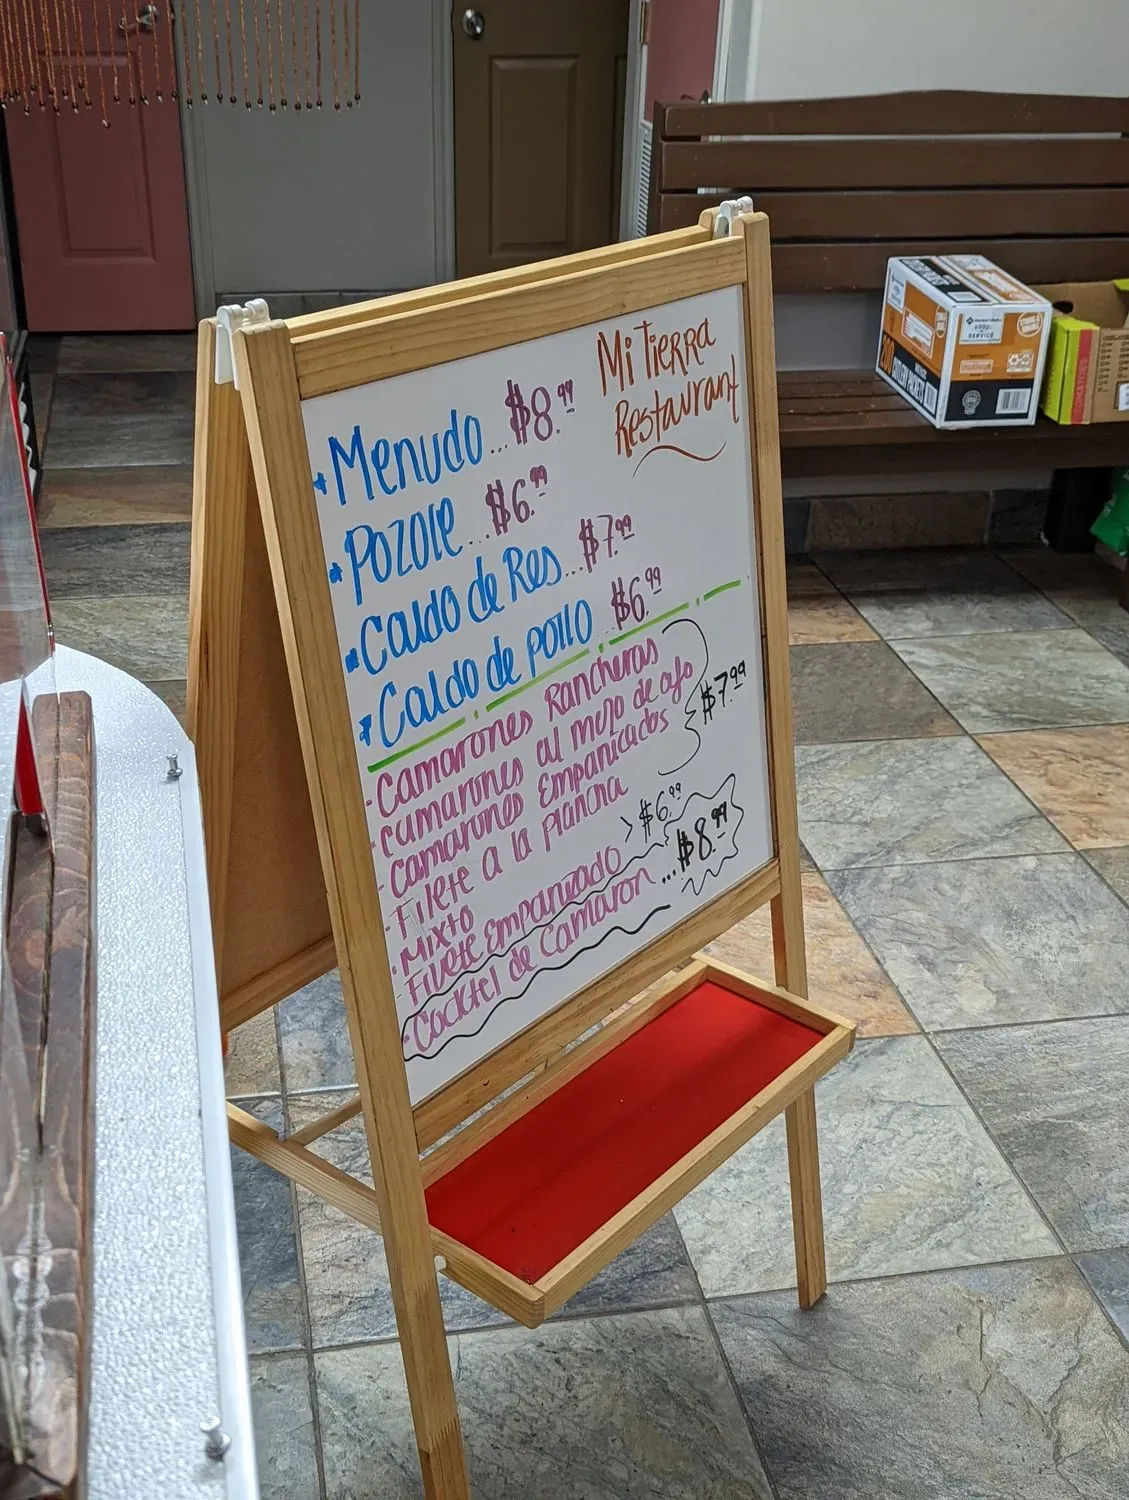 Mi Tierra
Restaurant
Menudo...$8.99
Pozole...$6.99
Caldo de Res...$7.99
Caldo de pollo...$6.99
- Camarones Rancheras
- camarones al mojo de ajo
- Camarones Empanicados
$7.99
- Filete a la plancha
- Mixto
- Filete Empanizado
> $6.99
- Cocktel de Camaron...$8.99